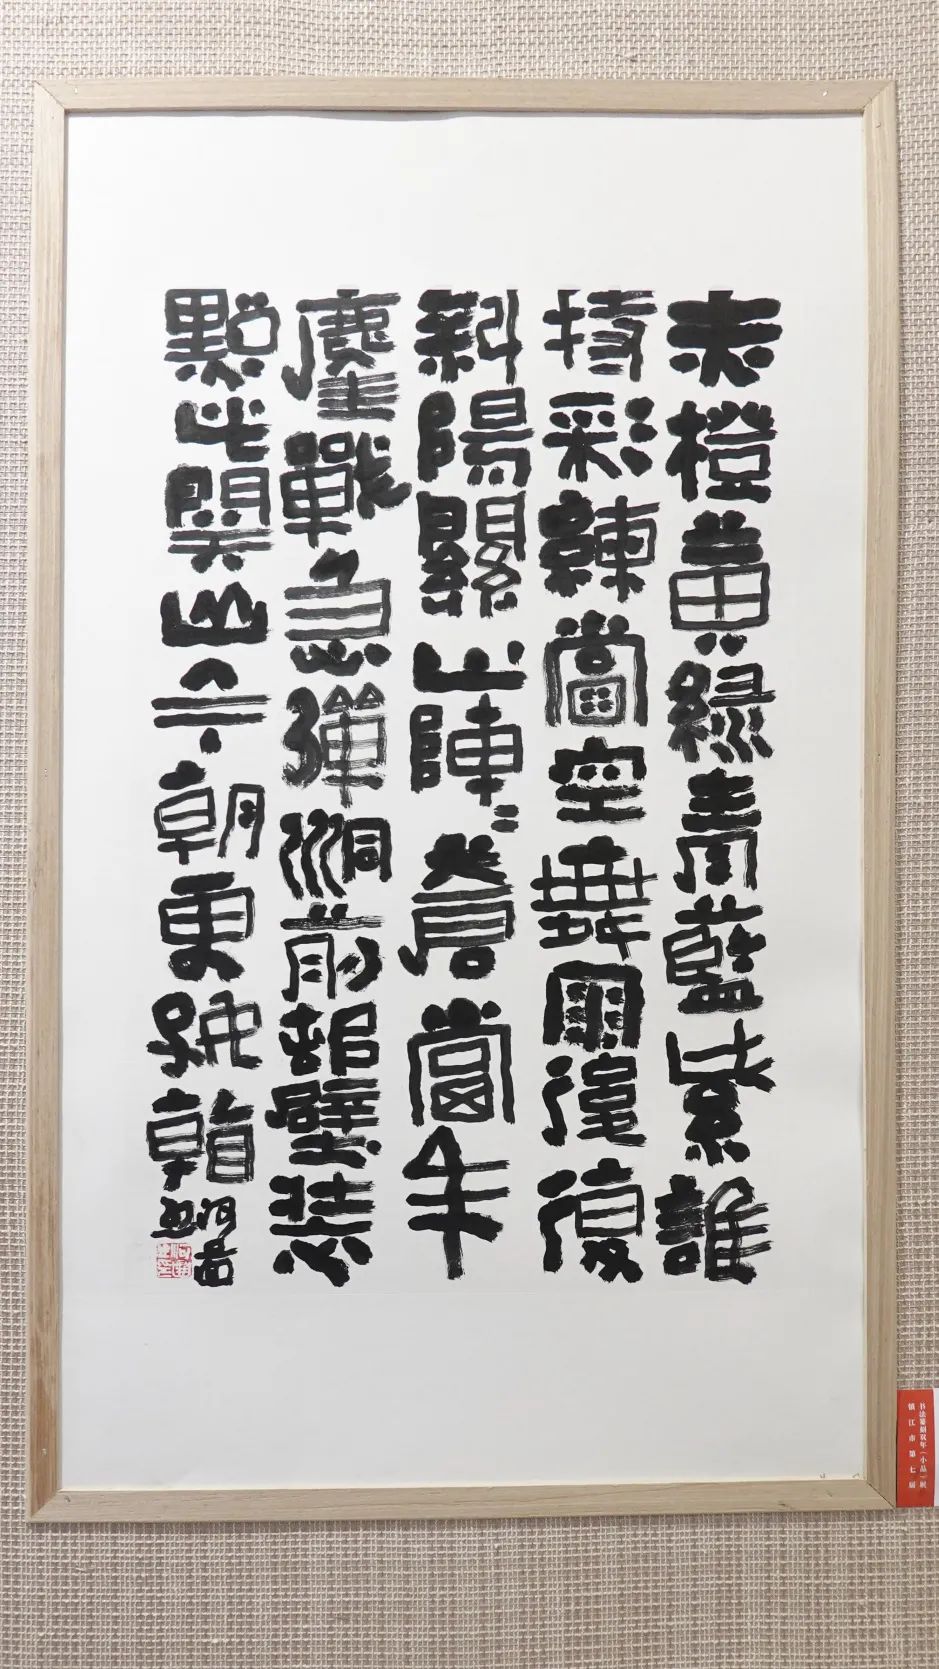 赤橙黄緑青藍紫誰
持彩練當空舞雨後復
斜陽關山陣〻蒼當年
鏖戰急彈洞前邨壁裝
點此関山今朝更好看
镇江市第七届
书法篆刻双年（小品）展